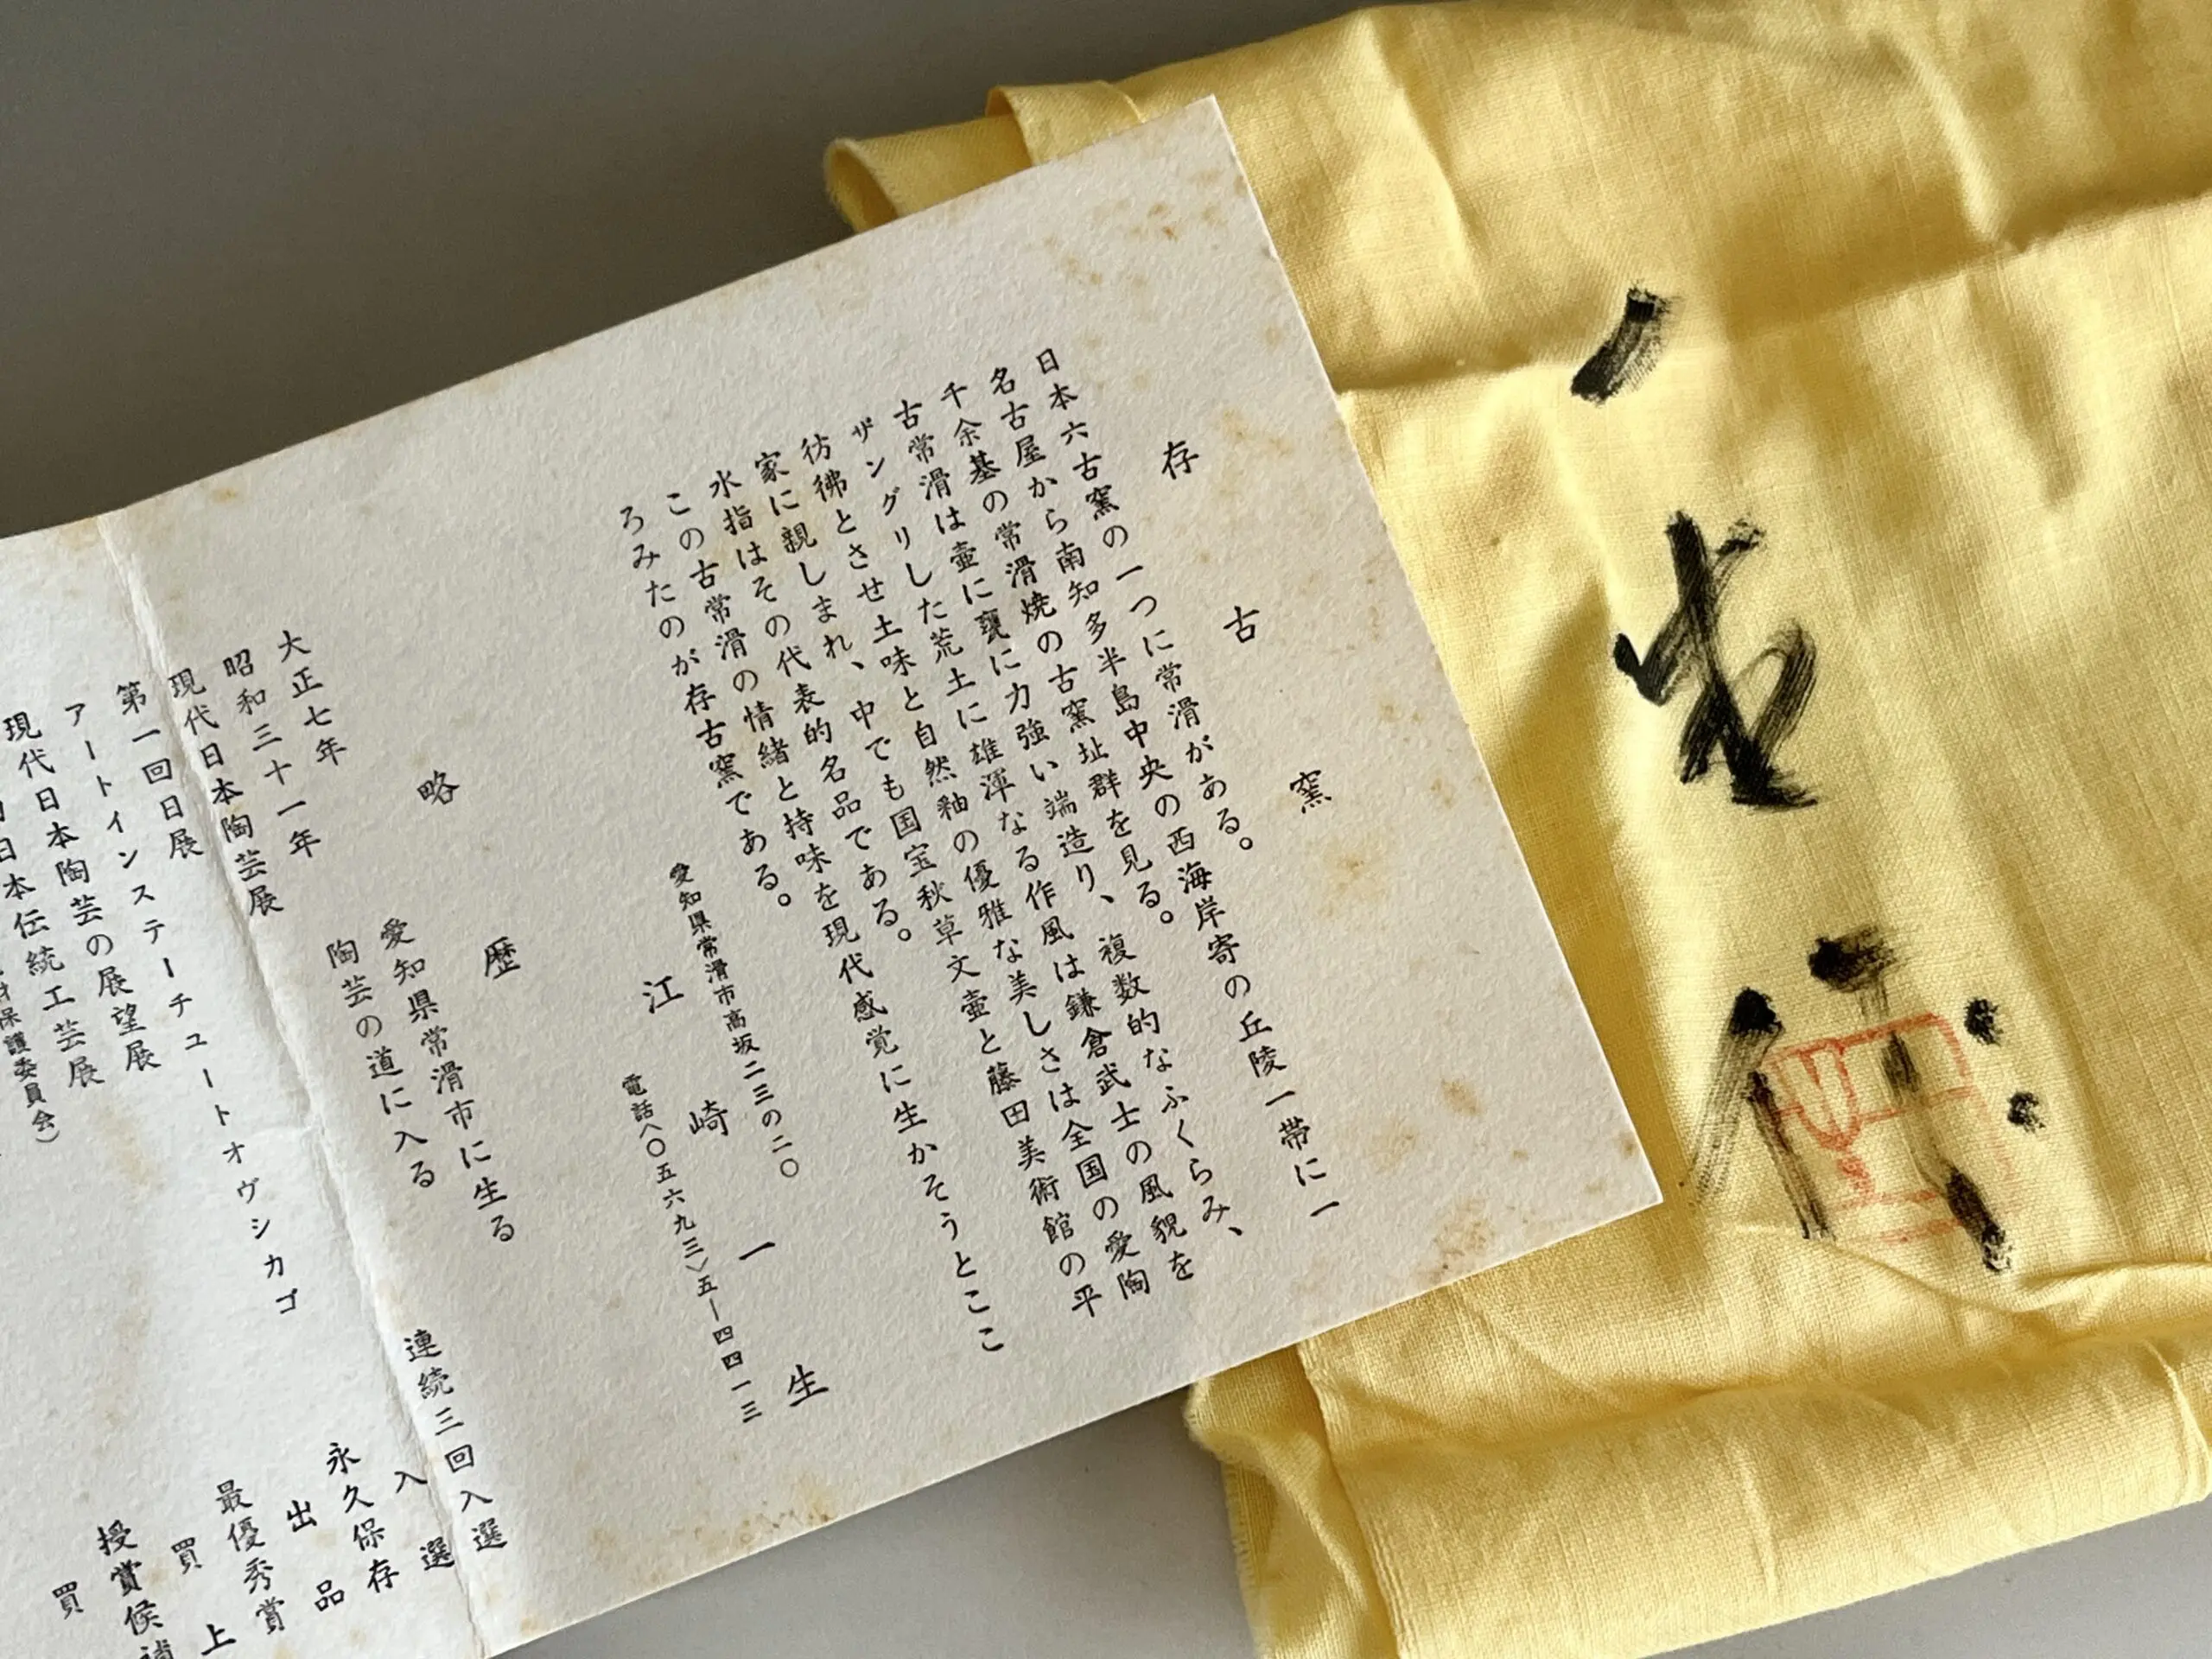 存古窯
日本六古窯の一つに常滑がある。
名古屋から南知多半島中央の西海岸寄の丘陵一帯に一
千余基の常滑焼の古窯址群を見る。
古常滑は壷に甕に力強い端造り、複数的なふくらみ、
ザングリした荒土に雄渾なる作風は鎌倉武士の風貌を
彷彿とさせ土味と自然釉の優雅な美しさは全国の愛陶
家に親しまれ、中でも国宝秋草文壷と藤田美術館の平
水指はその代表的名品である。
この古常滑の情緒と持味を現代感覚に生かそうとここ
ろみたのが存古窯である。
愛知県常滑市高坂二三の二〇
江崎一生
電話〈〇五六九三〉五―四四一三
略歴
大正七年 愛知県常滑市に生る
昭和三十一年 陶芸の道に入る
現代日本陶芸展 連続三回入選
第一回日展 入選
アートインステーチュートオヴシカゴ 永久保存
現代日本陶芸の展望展 出品
日本伝統工芸展 最優秀賞
保護委員会） 買上
授賞候補
買